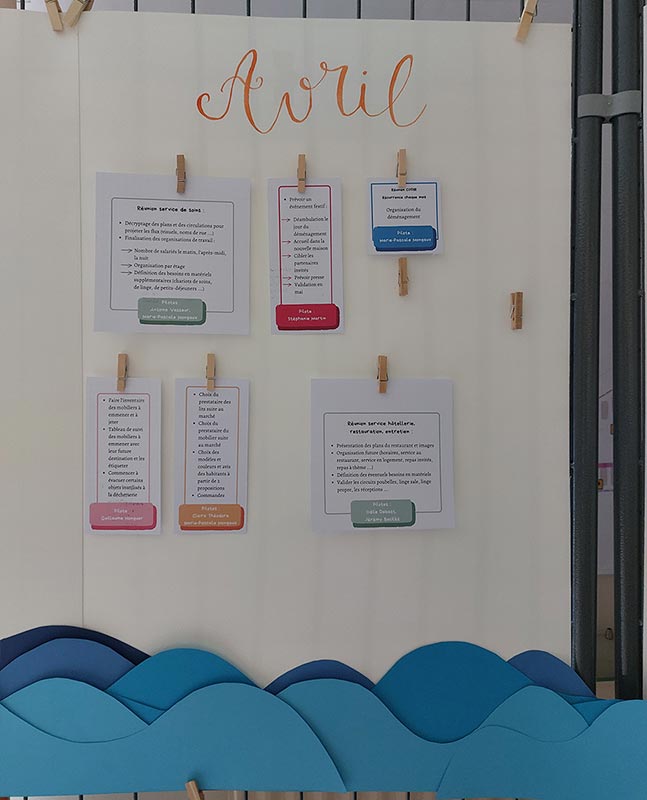 Avril
Réunion service de soins :
• Décryptage des plans et des circulations pour
projeter les flux (visuels, noms de rue ...)
• Finalisation des organisations de travail :
→ Nombre de salariés le matin, l'après-midi,
la nuit
→ Organisation par étage
→ Définition des besoins en matériels
supplémentaires (chariots de soins,
de linge, de petits-déjeuners ...)
Pilotes :
Marie-Pascale Mongaux
• Prévoir un
évènement festif :
→ Déambulation le
jour du
déménagement
→ Accueil dans la
nouvelle maison
→ Cibler les
partenaires
invités
→ Prévoir presse
→ Validation en
mai
Pilote :
Stéphanie Martin
Réunion CODIR
Récurrence chaque mois
Organisation du
déménagement
Pilote :
Marie-Pascale Mongaux
• Faire l'inventaire
des mobiliers à
emmener et à
jeter
• Tableau de suivi
des mobiliers à
emmener avec
leur future
destination et les
étiqueter
• Commencer à
évacuer certains
objets inutilisés à
la déchetterie
Pilote :
Guillaume
• Choix du
prestataire des
lits suite au
marché
• Choix du
prestataire du
mobilier suite au
marché
• Choix des
modèles et
couleurs et avis
des habitants à
partir de 2
propositions
• Commandes
Pilotes :
Marie-Pascale Mongaux
Réunion service hôtellerie,
restauration, entretien :
• Présentation des plans du restaurant et images
• Organisation future (horaires, service au
restaurant, service en logement, repas invités,
repas à thème ...)
• Définition des éventuels besoins en matériels
• Valider les circuits poubelles, linge sale, linge
propre, les réceptions ...
Pilotes :
Jérémy